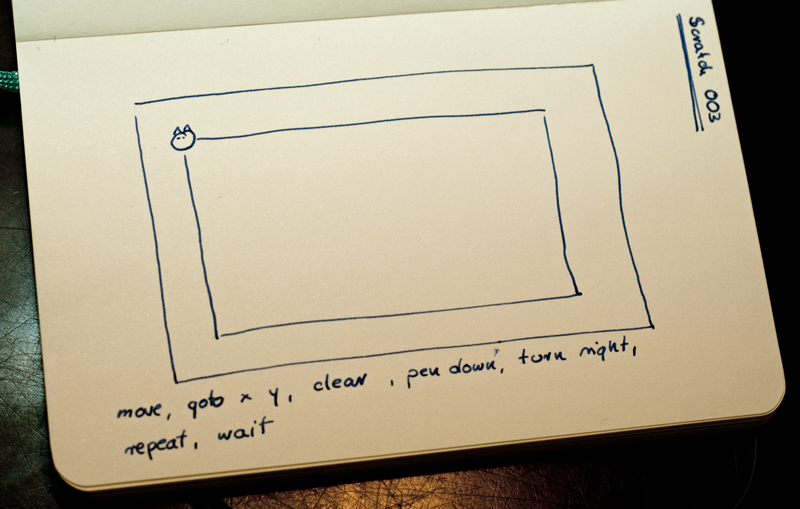 Scratch 003
move, goto x y, clear, pen down, turn right,
repeat, wait